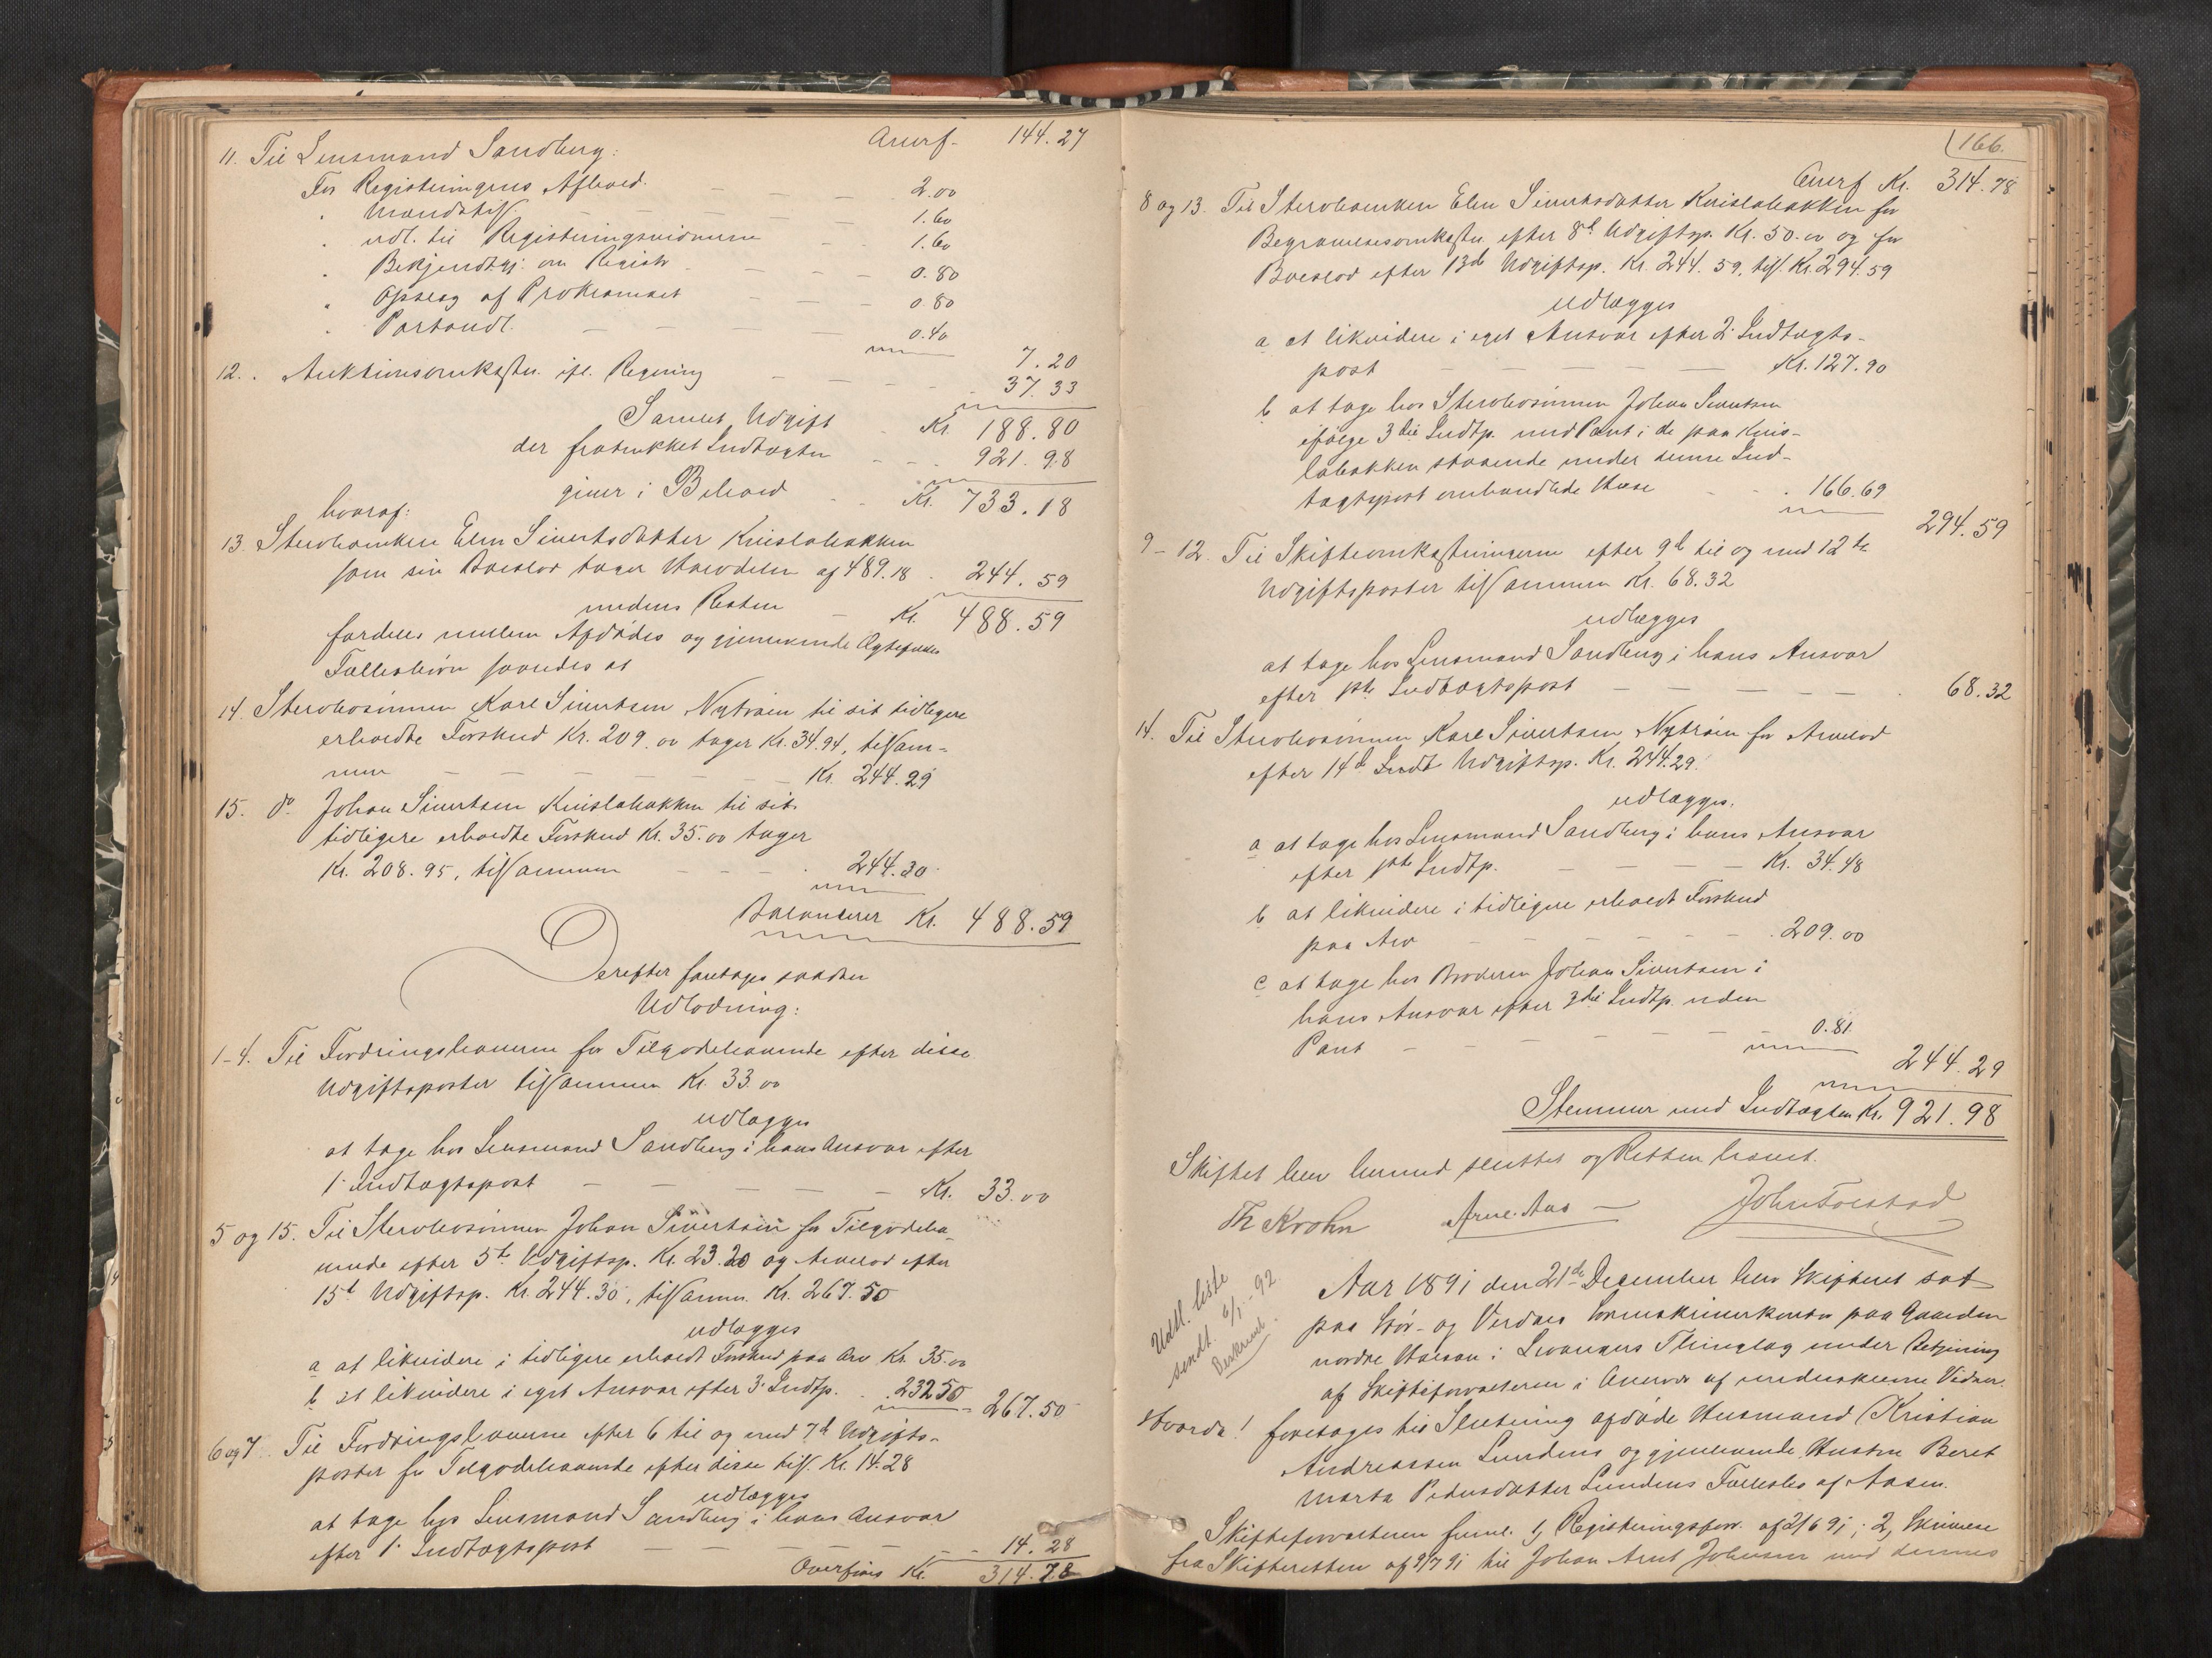 Averf. 144.27
11. Til Lensmand Sandberg:
For Registeringens Afhold. — — 2.00
" Mandatiss. — — — 1.60
" udl. til Registeringsvidnerne — 1.60
" Bekjendtgj. om Registr. — — — 0.80
" Opslag af Proklamaet — — — 0.80
" Portoudl. — — — 0.40
7.20
12. Auktionsomkostn. ifl. Regning — — — 37.33
Samlet Udgift Kr. 188.80
der fratrukket Indtægten — — 921.98
giver i Behold Kr. 733.18
hvoraf:
13. Sterboenken Elen Sivertsdatter Kvislabakken
som sin Boeslod tager Halvdelen af 489.18 . 244.59
medens Resten — Kr. 488.59
fordeles mellem Afdødes og gjenlevende Ægtefælles
Fællesbørn saaledes at
14. Sterbosønnen Karl Sivertsen Nytrøen til sit tidligere
erholdte Forskud Kr. 209.00 tager Kr. 34.94, tilsam-
men — — — — Kr. 244.29
15. do. Johan Sivertsen Kvislabakken til sit
tidligere erholdte Forskud Kr. 35.00 tager
Kr. 208.95, tilsammen — — — 244.30
Balancerer Kr. 488.59
Derefter foretages saadan
Udlodning:
1-4. Til Fordringshaverne for Tilgodehavende efter disse
Udgiftsposter tilsammen Kr. 33.00
udlægges
at tage hos Lensmand Sandberg i hans Ansvar efter
1. Indtægtspost — — — — Kr. 33.00
5 og 15. Til Sterbosønnen Johan Sivertsen for Tilgodeha-
vende efter 5te Udgiftsp. Kr. 23.20 og Arvelod efter
15de Udgiftsp. Kr. 244.30, tilsamm. Kr. 267.50
udlægges
a at likvidere i tidligere erholdt Forskud paa Arv Kr. 35.00
b at likvidere i eget Ansvar efter 3. Indtp. . . 232.50 267.50
6 og 7. Til Fordringshaverne efter 6 til og med 7de Udgifts-
poster for Tilgodehavende efter disse tils. Kr. 14.28
udlægges
at tage hos Lensmand Sandberg i hans Ansvar
efter 1. Indtægtspost — — — — 14.28
Overføres Kr. 314.78
166.
Averf Kr. 314.78
8 og 13. Til Sterboenken Elen Sivertsdatter Kvislabakken for
Begravelsesomkostn. efter 8de Udgiftsp. Kr. 50.00 og for
Boeslod efter 13de Udgiftsp. Kr. 244.59, tils. Kr. 294.59
udlægges
a at likvidere i eget Ansvar efter 2. Indtægts-
post — — — — Kr. 127.90
b at tage hos Sterbosønnen Johan Sivertsen
ifølge 3die Indtp. med Pant i de paa Kvis-
labakken staaende under denne Ind-
tægtspost omhandlede Huse — . 166.69
294.59
9-12. Til Skifteomkostningerne efter 9de til og med 12te
Udgiftsposter tilsammen Kr. 68.32
udlægges
at tage hos Lensmand Sandberg i hans Ansvar
efter 1ste Indtægtspost — — — — 68.32
14. Til Sterbosønnen Karl Sivertsen Nytrøen for Arvelod
efter 14de Indt Udgiftsp. Kr. 244.29.
udlægges.
a at tage hos Lensmand Sandberg i hans Ansvar
efter 1ste Indtp. — — — Kr. 34.48
b at likvidere i tidligere erholdt Forskud
paa Arv — — — — . 209.00
c at tage hos Broderen Johan Sivertsen i
hans Ansvar efter 3die Indtp. uden
Pant — — — — 0.81.
244.29
Stemmer med Indtægten Kr. 921.98
Skiftet blev hermed sluttet og Retten hævet.
Th Krohn Arnt Aas — John Tolstad
Udl. liste
sendt. 6/1-92
Aar 1891 den 21de December blev Skifteret sat
paa Stør- og Verdals Sorenskriverkontor paa Gaarden
nordre Halsan i Levangers Thinglag under Betjening
af Skifteforvalteren i Overvær af underskrevne Vidner.
Hvorda! foretoges til Slutning afdøde Husmand Kristian
Andreassen Lundens og gjenlevende Hustru Beret
Marta Pedersdatter Lundens Fællesbo af Aasen.
Skifteforvalteren freml. 1, Registeringsforr. af 2/6 91; 2, Skrivelse
fra Skifteretten af 9/7 91 til Johan Arnt Johnsen med dennes